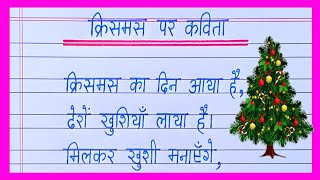 क्रिसमस पर कविता
क्रिसमस का दिन आया है,
ढेरों खुशियाँ लाया है।
मिलकर खुशी मनाएँगे,